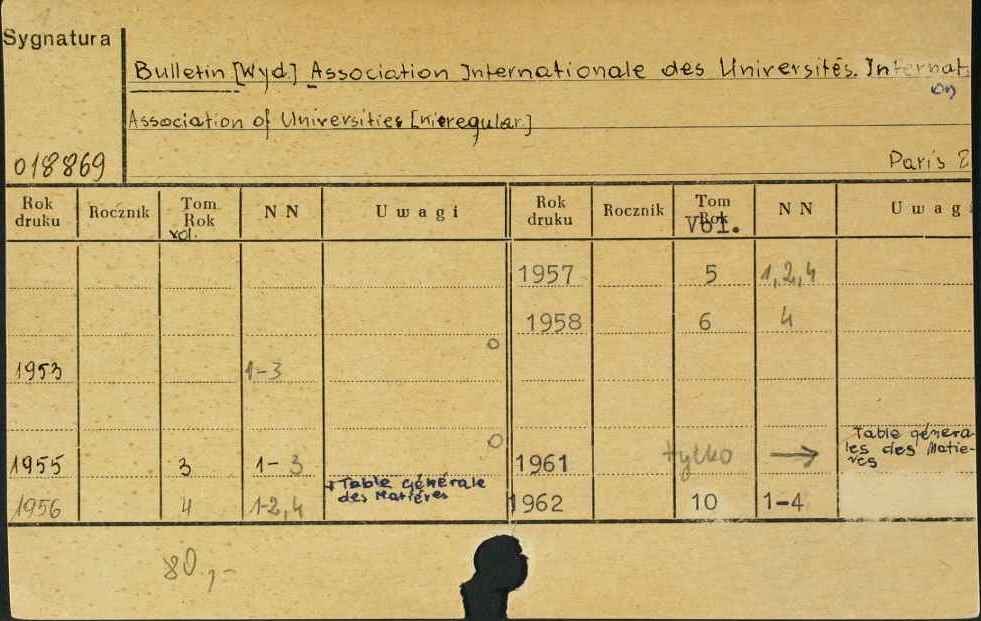 Sygnatura
Bulletin [Wyd.] Association Internationale des Universités. Internat.
on
Association of Universities [nieregular.]
018869
Paris
Rok druku Rocznik Tom Rok vol. NN Uwagi Rok druku Rocznik Tom Rok Vol. NN Uwagi
1957 5 1,2,4
1958 6 4
1953 1-3
1955 3 1-3
1961 tylko → Table générales des Matières
1956 4 1-2,4 + Table générale des Matières
1962 10 1-4
80,-